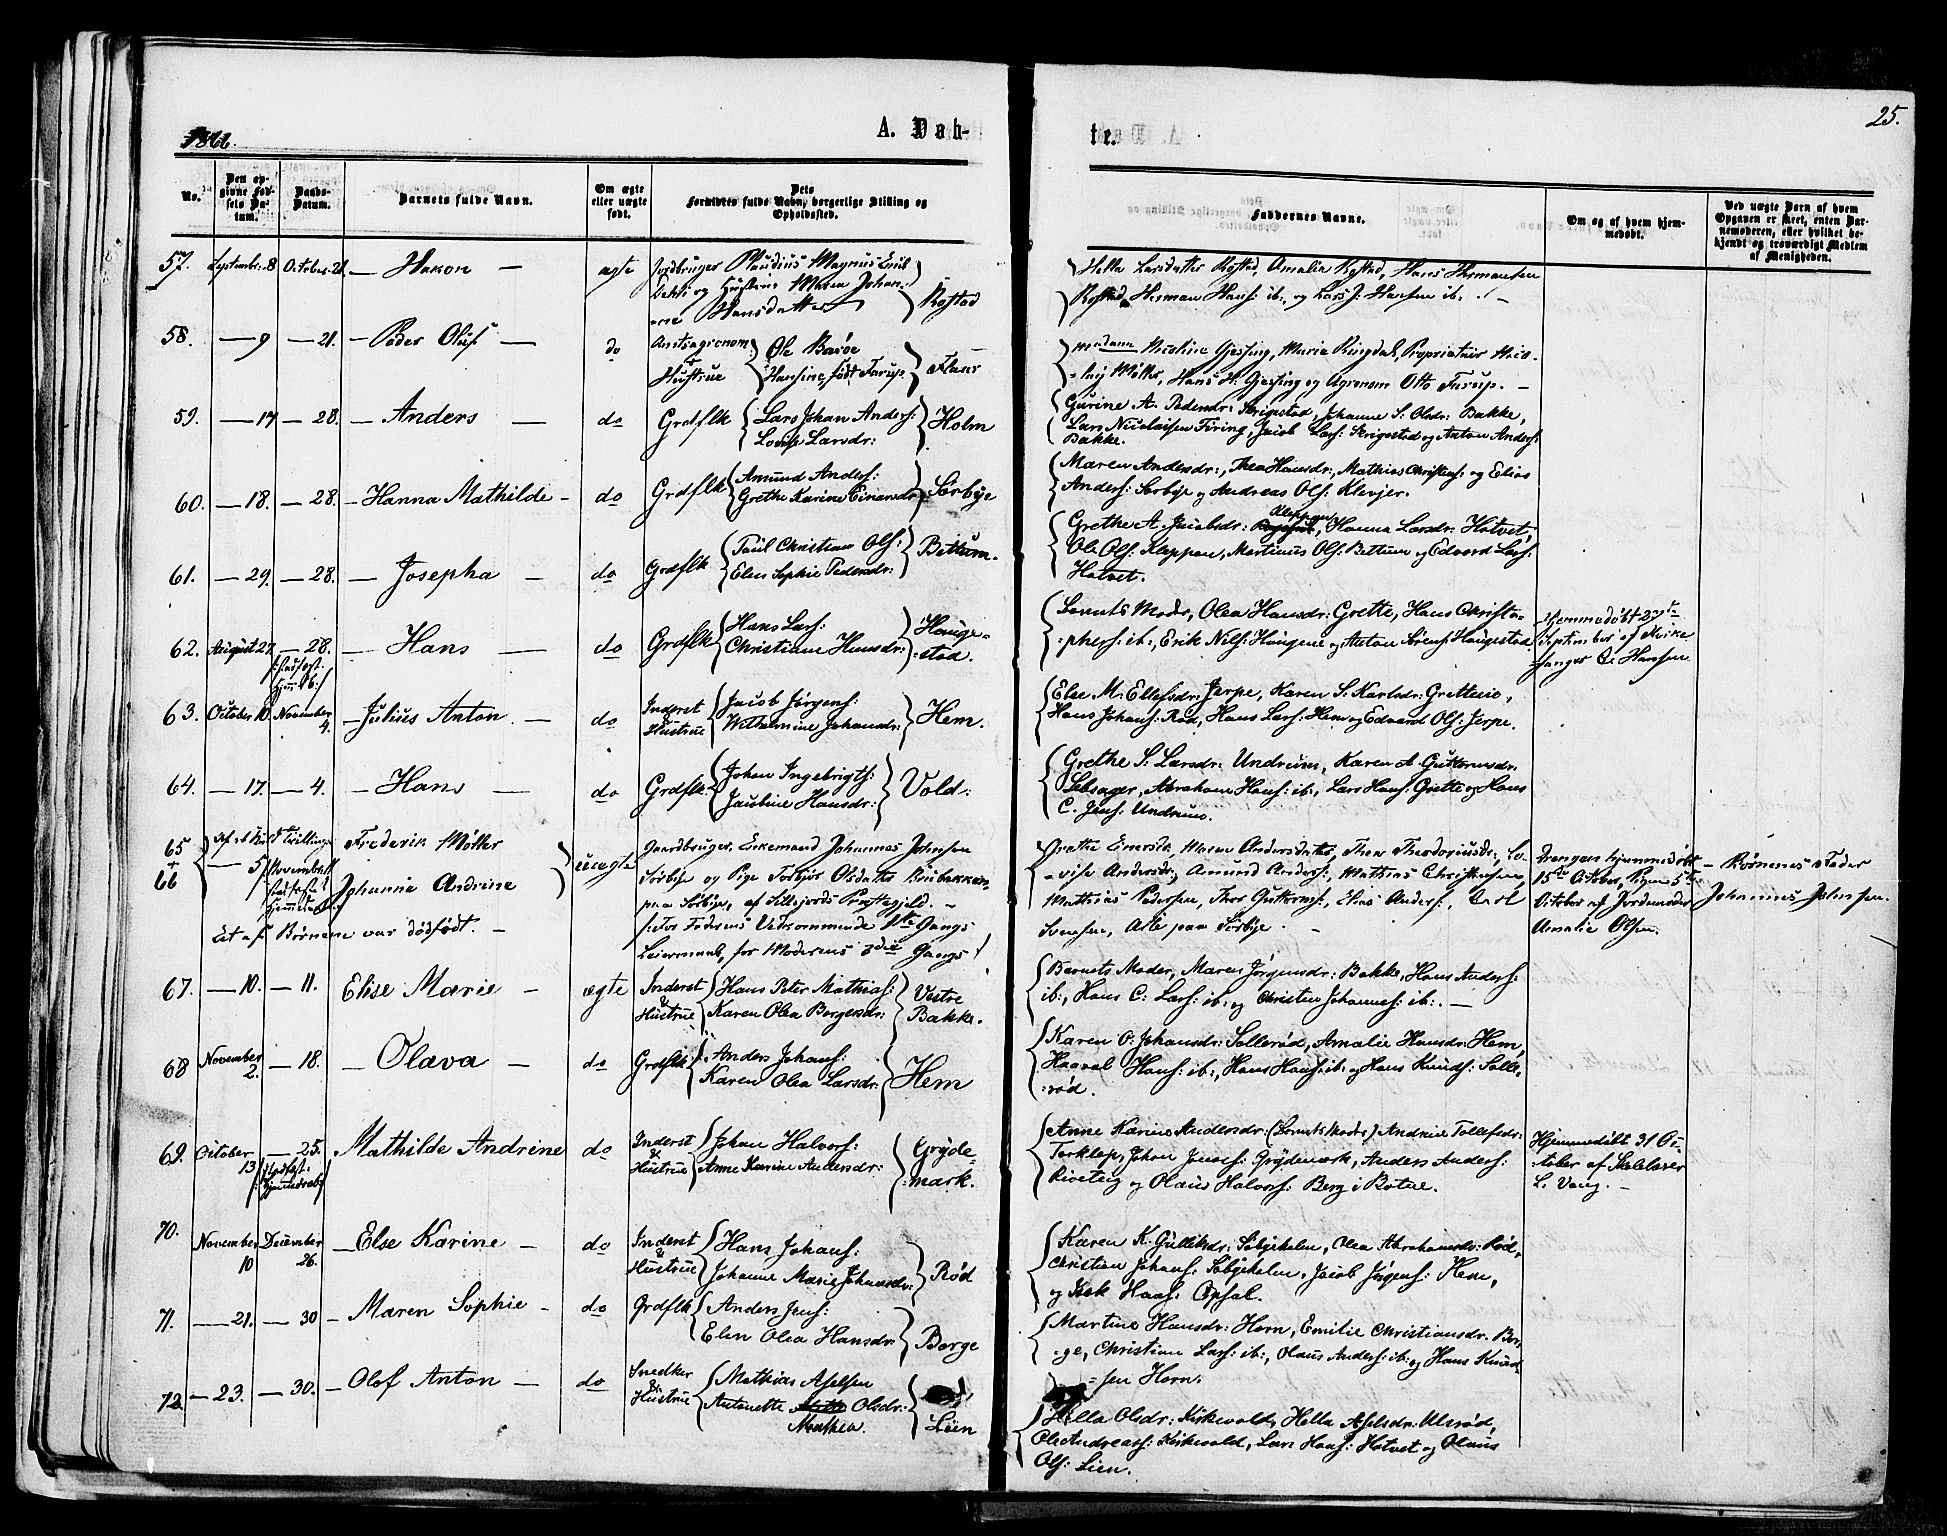 1866.
A. Døb-
te.
25.
No.
Den opgivne Fødsels Datum.
Daabs-Datum.
Barnets fulde Navn.
Om ægte eller uægte født.
Forældres fulde Navn, borgerlige Stilling og Opholdssted.
Faddernes Navne.
Om og af hvem hjemmedøbt.
Ved uægte Børn af hvem Opgaven er skeet, enten Barnemoderen, eller hvilket bekjendt og troværdigt Medlem af Menigheden.
57. September 8 October 21 — Hakon — ægte Jordbruger Magnus Emil
og Hustru Maren Johan-
ne Hansdatter Rostad
Hella Larsdatter Rostad, Amalia Rostad, Hans Hermansen
Rostad, Herman Hans: ib:, og Lars J. Hansen ib:
58. — 9 — 21. — Peder Oluf — do Amtsagronom Ole Barøe
Hustrue Hansine, født Farup.
Madame Nicoline Gjessing, Marie Ringdal, Proprietair
Møller, Hans H. Gjessing og Agronom Otto Farup. —
59. — 17 — 28. — Anders — do Grdflk Lars Johan Anders:
Lovise Larsdr: Holm
Gurine A. Pedersdr: Skrigestad, Johanne S. Olsdr: Bakke,
Lars Nicolaisen Firing, Jacob Lars: Skrigestad og Anton Anders:
Bakke.
60. — 18. — 28. — Hanna Mathilde — do Grdflk Amund Anders:
Grethe Karine Einarsdr: Sørbye
Maren Andersdr:, Thea Hansdr:, Mathias Christens: og Elias
Anders: Sørbye og Andreas Ols: Klevjer.
61. — 29. — 28. — Josepha — do Grdflk Poul Christian Ols:
Elen Sophie Pedersdr: Bettum.
Grethe A. Jacobsdr: Kleppen, Hanna Larsdr: Hotvet,
Ole Ols: Kleppen, Martinus Ols: Bettum og Edvard Lars:
Hotvet.
62. August 27 — 28. — Hans — do Grdflk Hans Lars:
Christiane Hansdr: Hauge-
stad.
Barnets Moder, Olea Hansdr: Grette, Hans Christo-
phers: ib:, Erik Nils: Haugene og Anton Sørens: Haugestad
Hjemmedøbt 27de
September af Kirke-
sanger C. Hanssen
63. October 10. November 4. — Julius Anton. — do Inderst
Hustrue
Jacob Jørgens:
Wilhelmine Johansdr: Hem.
Else M. Ellefsdr: Jerpe, Karen S. Karlsdr: Gretterø,
Hans Johans: Rød, Hans Lars: Hem og Edvard Ols: Jerpe.
64. — 17. — 4. — Hans — do Grdflk: Johan Ingebrigts:
Jacobine Hansdr: Vold:
Grethe S. Larsdr: Undrum, Karen A Guttormsdr:
Sebsager, Abraham Hans: ib:, Lars Hans: Grette og Hans
C. Jens: Undrum.
65
+
66
Tvillinger
— 5 November
Frederik Møller
Johanne Andrine uægte
Et af Børnene var dødfødt. —
Gaardbruger, Enkemand Johannes Johnsen
Sørbye og Pige Torbjør Olsdatter Brubakken
paa Sørbye, af Sillejords Præstegjeld. —
for Faderens Vedkommende 1ste Gangs
Leiermaal, for Moderens 3die Gangs
Grethe Einersdr, Maren Andersdatter, Thea Theodoriusdr:, Lo-
-vise Andersdr:, Amund Anders:, Mathias Christensen,
Mathias Pedersen, Thor Guttorms:, Elias Anders:, Carl
Svensen, Alle paa Sørbye. —
Drengen hjemmedøbt
15de October, Pigen 5te
October af Jordemoder
Amalie Olsen.
— Børnenes Fader
Johannes Johnsen.
67. — 10. — 11. Elise Marie — ægte Inderst
&
Hustrue
Hans Peter Mathias:
Karen Olea Borgersdr: Vestre
Bakke.
Barnets Moder, Maren Jørgensdr: Bakke, Hans Anders:
ib:, Hans C: Lars: ib: og Christen Johannes: ib:. —
68 November 2. — 18. — Olava — do Grdflk Anders Johans:
Karen Olea Larsdr: Hem
Karen O: Johansdr: Sollerød, Amalie Hansdr: Hem,
Haaval Hans: ib:, Hans Hans: ib: og Hans Knuds: Solle-
:rød.
69. October 13 — 25. Mathilde Andrine do Inderst
&
Hustrue
Johan Halvors:
Anne Karine Andersdr: Gryde-
:mark.
Anne Karine Andersdr: (Barnets Moder) Andrine Tollefsdr:
Torklep, Johan Jonas: Grydemark, Anders Anders:
og Olaus Halvors: Berg i Botne.
Hjemmedøbt 31 Oc-
tober af Skolelærer
L. Vang. —
70. November 10 December 26. — Else Karine — do Inderst
&
Hustrue
Hans Johans:
Johanne Marie Johansdr: Rød
Karen K. Gulliksdr: Søbyholm, Olea Abrahamsdr: Rød,
Christian Johans: Søbyholm, Jacob Jørgens: Hem,
og Isak Haags: Opsal.
71. — 21. — 30 — Maren Sophie — do Grdflk Anders Jens:
Elen Olea Hansdr: Borge
Martine Hansdr: Horn, Emilie Christiansdr. Bor-
-ge, Christian Lars: ib:, Olaus Anders: ib: og Hans Knud-
-sen Horn.
72. — 23. — 30. — Olof Anton — do Snedker
&
Hustrue
Mathias Aselsen
Antonette Olsdr:
Mathea Lien
Hella Olsdr: Kirkevold, Hella Aselsdr: Ulsrød,
Ole Andreas: Kirkevold, Lars Hans: Hotvet og Olaus
Ols: Lien.